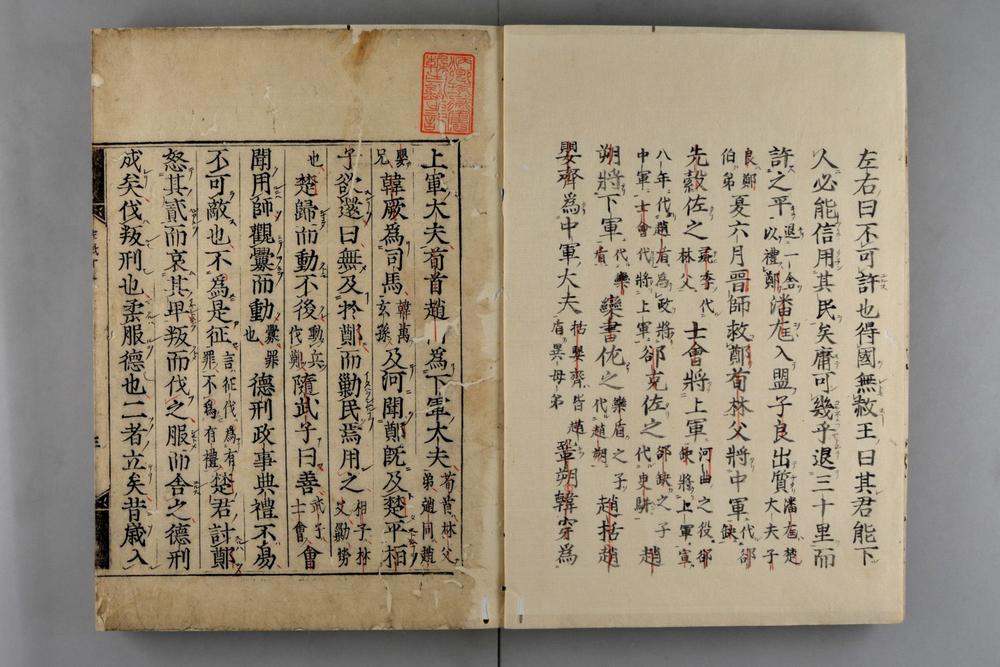 左右曰不可許也得國無赦王曰其君能下
人必能信用其民矣庸可幾乎退三十里而
許之平退一舍以禮鄭潘尫入盟子良出質潘尫楚大夫子
良鄭伯弟夏六月晉師救鄭荀林父將中軍代郤缺
先縠佐之彘季代林父士會將上軍河曲之役郤缺將上軍宣
八年代趙盾為政將中軍士會代將上軍郤克佐之郤缺之子代臾駢趙
朔將下軍代欒盾欒書佐之欒盾之子代趙朔趙括趙
嬰齊為中軍大夫括嬰齊皆趙盾異母弟鞏朔韓穿為
上軍大夫荀首趙為下軍大夫荀首林父弟趙同趙
嬰兄韓厥為司馬韓萬玄孫及河聞鄭旣及楚平桓
子欲還曰無及於鄭而勦民焉用之桓子林父勦勞
也楚歸而動不後動兵伐鄭隨武子曰善武子士會會
聞用師觀釁而動釁罪也德刑政事典禮不易
不可敵也不為是征言征伐為有罪不為有禮楚君討鄭
怒其貳而哀其卑叛而伐之服而舍之德刑
成矣伐叛刑也柔服德也二者立矣昔歲入